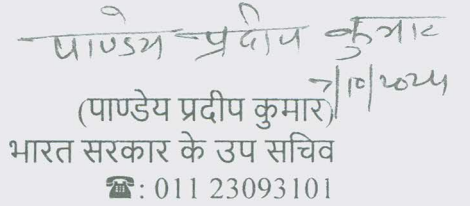 पाण्डेय प्रदीप कुमार
7/10/2024
(पाण्डेय प्रदीप कुमार)
भारत सरकार के उप सचिव
☎: 011 23093101